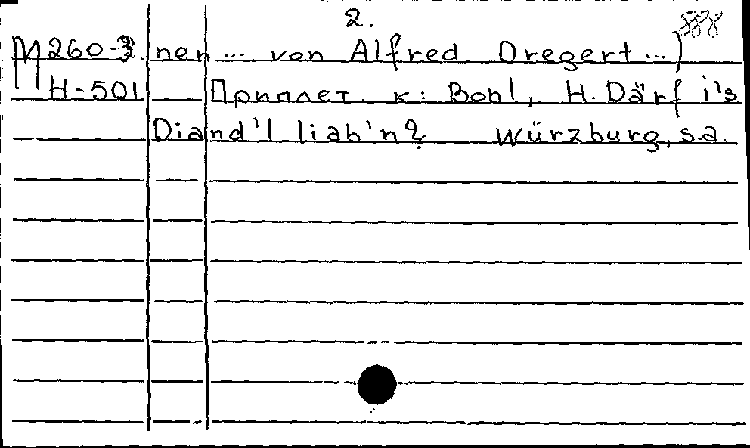 2.
М260-3 ner ... von Alfred Dregert ...)
H-501 Приплет. к: Bohl, H. Därf i's
Diand'l liab'n? Würzburg, s.a.